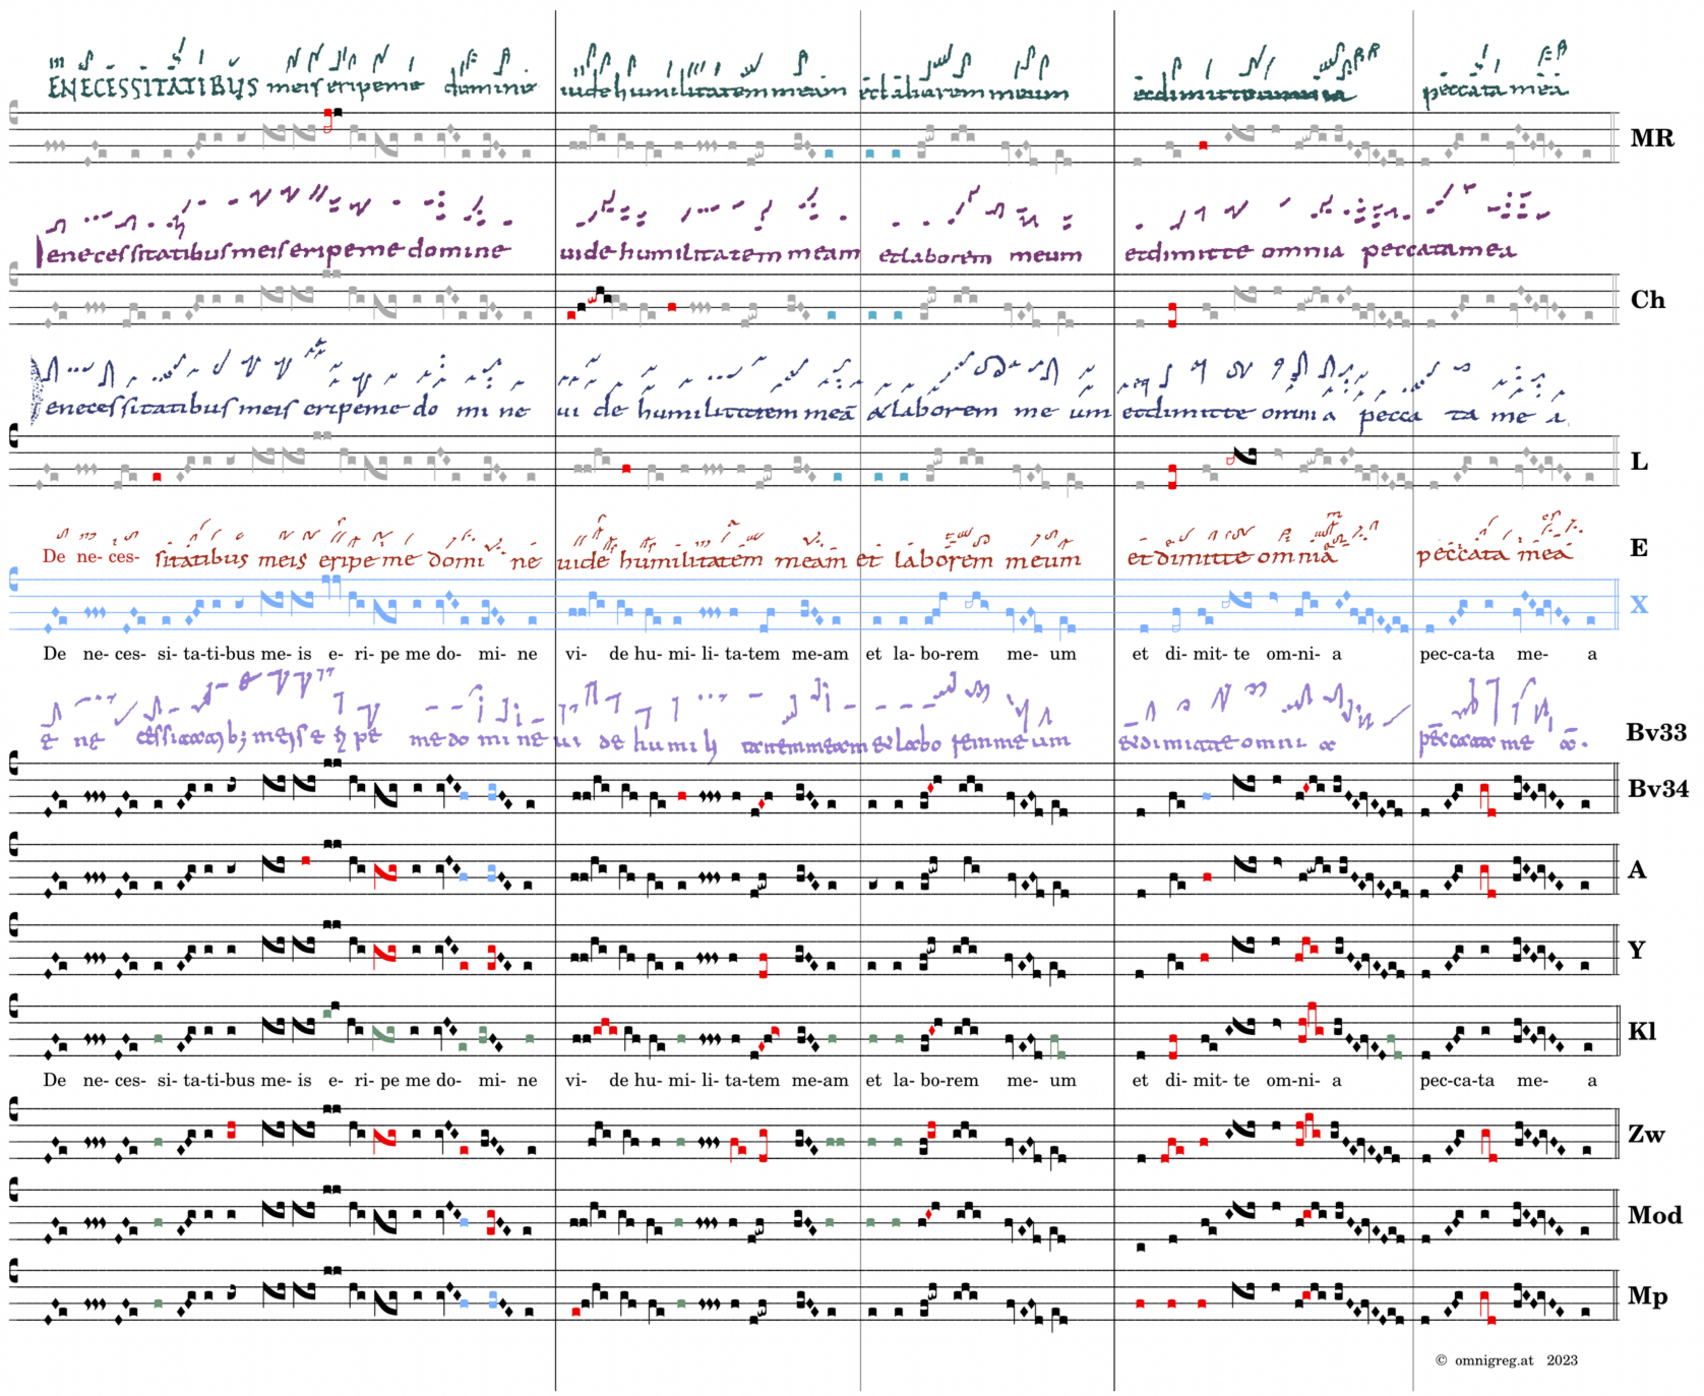 ENECESSITATIBUS meis eripeme domine uidehumilitatem meam etlaborem meum etdimitte omnia peccata mea
MR
enecessitatibus meis eripeme domine uidehumilitatem meam etlaborem meum etdimitte omnia peccatamea
Ch
enecessitatibus meis eripeme do mi ne ui de humilitatem meā & laborem me um etdimitte omni a pecca ta me a
L
De ne- ces- sitatibus meis eripe me domi ne uide humilitatem meam et laborem meum et dimitte omnia peccata mea
E
X
De ne- ces- si- ta-ti-bus me- is e- ri- pe me do- mi- ne vi- de hu- mi- li- ta-tem me-am et la- bo-rem me- um et di- mit- te om-ni- a pec-ca-ta me- a
Bv33
Bv34
A
Y
Kl
De ne- ces- si- ta-ti-bus me- is e- ri- pe me do- mi- ne vi- de hu- mi- li- ta-tem me-am et la- bo-rem me- um et di- mit- te om-ni- a pec-ca-ta me- a
Zw
Mod
Mp
© omnigreg.at 2023